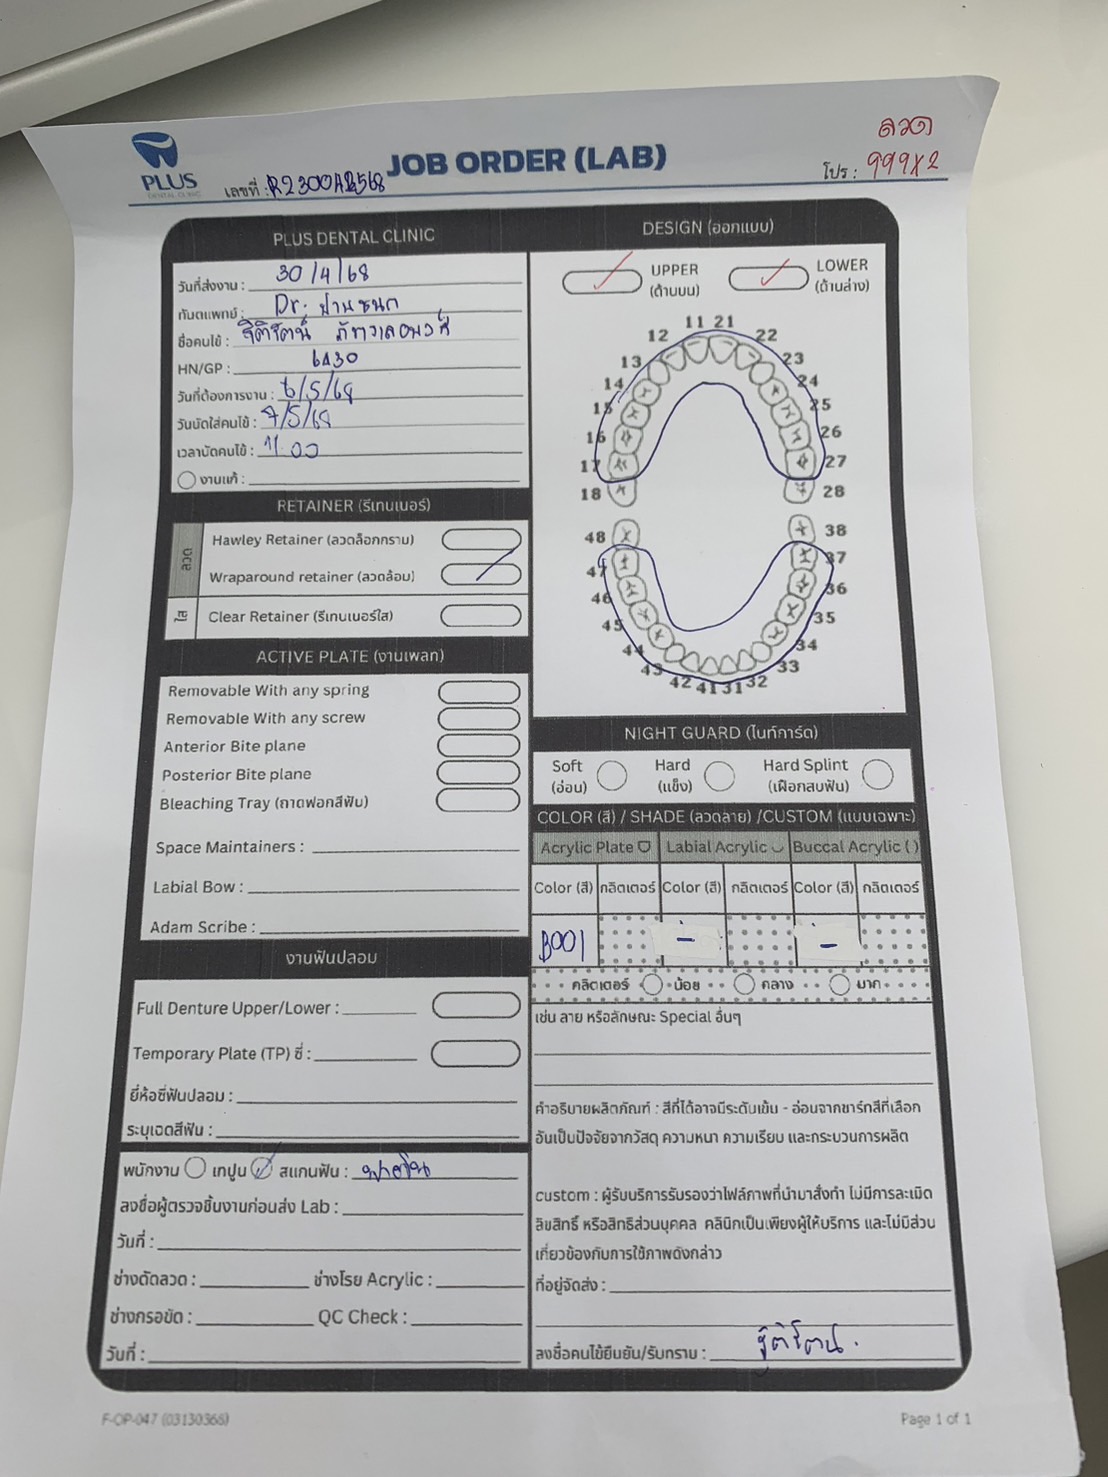 ลวด
PLUS
DENTAL CLINIC
JOB ORDER (LAB)
เลขที่ :
โปร : 999x2
PLUS DENTAL CLINIC
วันที่ส่งงาน : 30/4/68
ทันตแพทย์ : Dr. ปานชนก
ชื่อคนไข้ : ฐิติรัตน์
HN/GP : 6430
วันที่ต้องการงาน : 6/5/68
วันนัดใส่คนไข้ : 7/5/68
เวลานัดคนไข้ : 11.00
งานแก้ :
RETAINER (รีเทนเนอร์)
ลวด
Hawley Retainer (ลวดล็อกกราม)
Wraparound retainer (ลวดล้อม)
ใส
Clear Retainer (รีเทนเนอร์ใส)
ACTIVE PLATE (งานเพลท)
Removable With any spring
Removable With any screw
Anterior Bite plane
Posterior Bite plane
Bleaching Tray (ถาดฟอกสีฟัน)
Space Maintainers :
Labial Bow :
Adam Scribe :
งานฟันปลอม
Full Denture Upper/Lower :
Temporary Plate (TP) ซี่ :
ยี่ห้อซี่ฟันปลอม :
ระบุเฉดสีฟัน :
พนักงาน เทปูน สแกนฟัน :
ลงชื่อผู้ตรวจชิ้นงานก่อนส่ง Lab :
วันที่ :
ช่างดัดลวด : ช่างโรย Acrylic :
ช่างกรอขัด : QC Check :
วันที่ :
DESIGN (ออกแบบ)
UPPER (ด้านบน)
LOWER (ด้านล่าง)
11 21
12 22
13 23
14 24
15 25
16 26
17 27
18 28
48 38
47 37
46 36
45 35
44 34
43 33
42 41 31 32
NIGHT GUARD (ไนท์การ์ด)
Soft (อ่อน)
Hard (แข็ง)
Hard Splint (เฝือกสบฟัน)
COLOR (สี) / SHADE (ลวดลาย) /CUSTOM (แบบเฉพาะ)
Acrylic Plate Labial Acrylic Buccal Acrylic ( )
Color (สี) กลิตเตอร์ Color (สี) กลิตเตอร์ Color (สี) กลิตเตอร์
B001 - -
กลิตเตอร์ น้อย กลาง มาก
เช่น ลาย หรือลักษณะ Special อื่นๆ
คำอธิบายผลิตภัณฑ์ : สีที่ได้อาจมีระดับเข้ม - อ่อนจากชาร์ทสีที่เลือก
อันเป็นปัจจัยจากวัสดุ ความหนา ความเรียบ และกระบวนการผลิต
custom : ผู้รับบริการรับรองว่าไฟล์ภาพที่นำมาสั่งทำ ไม่มีการละเมิด
ลิขสิทธิ์ หรือสิทธิส่วนบุคคล คลินิกเป็นเพียงผู้ให้บริการ และไม่มีส่วน
เกี่ยวข้องกับการใช้ภาพดังกล่าว
ที่อยู่จัดส่ง :
ลงชื่อคนไข้ยืนยัน/รับทราบ : ฐิติรัตน์.
F-OP-047 (03130366)
Page 1 of 1